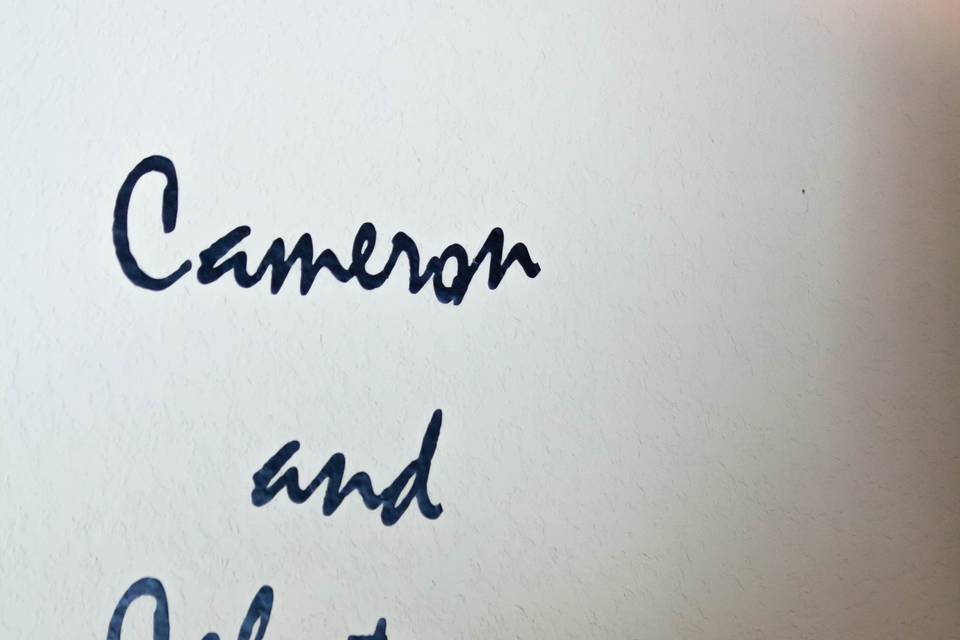 Cameron
and